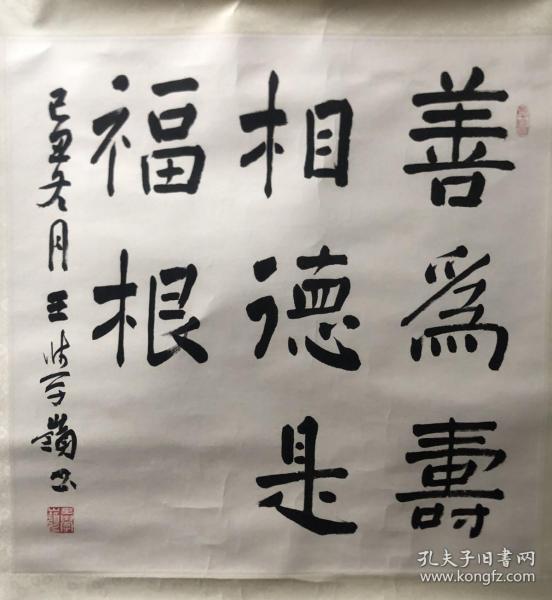 善為壽
相德是
福根
己丑冬月王学岭书
孔夫子旧书网
www.kongfz.com